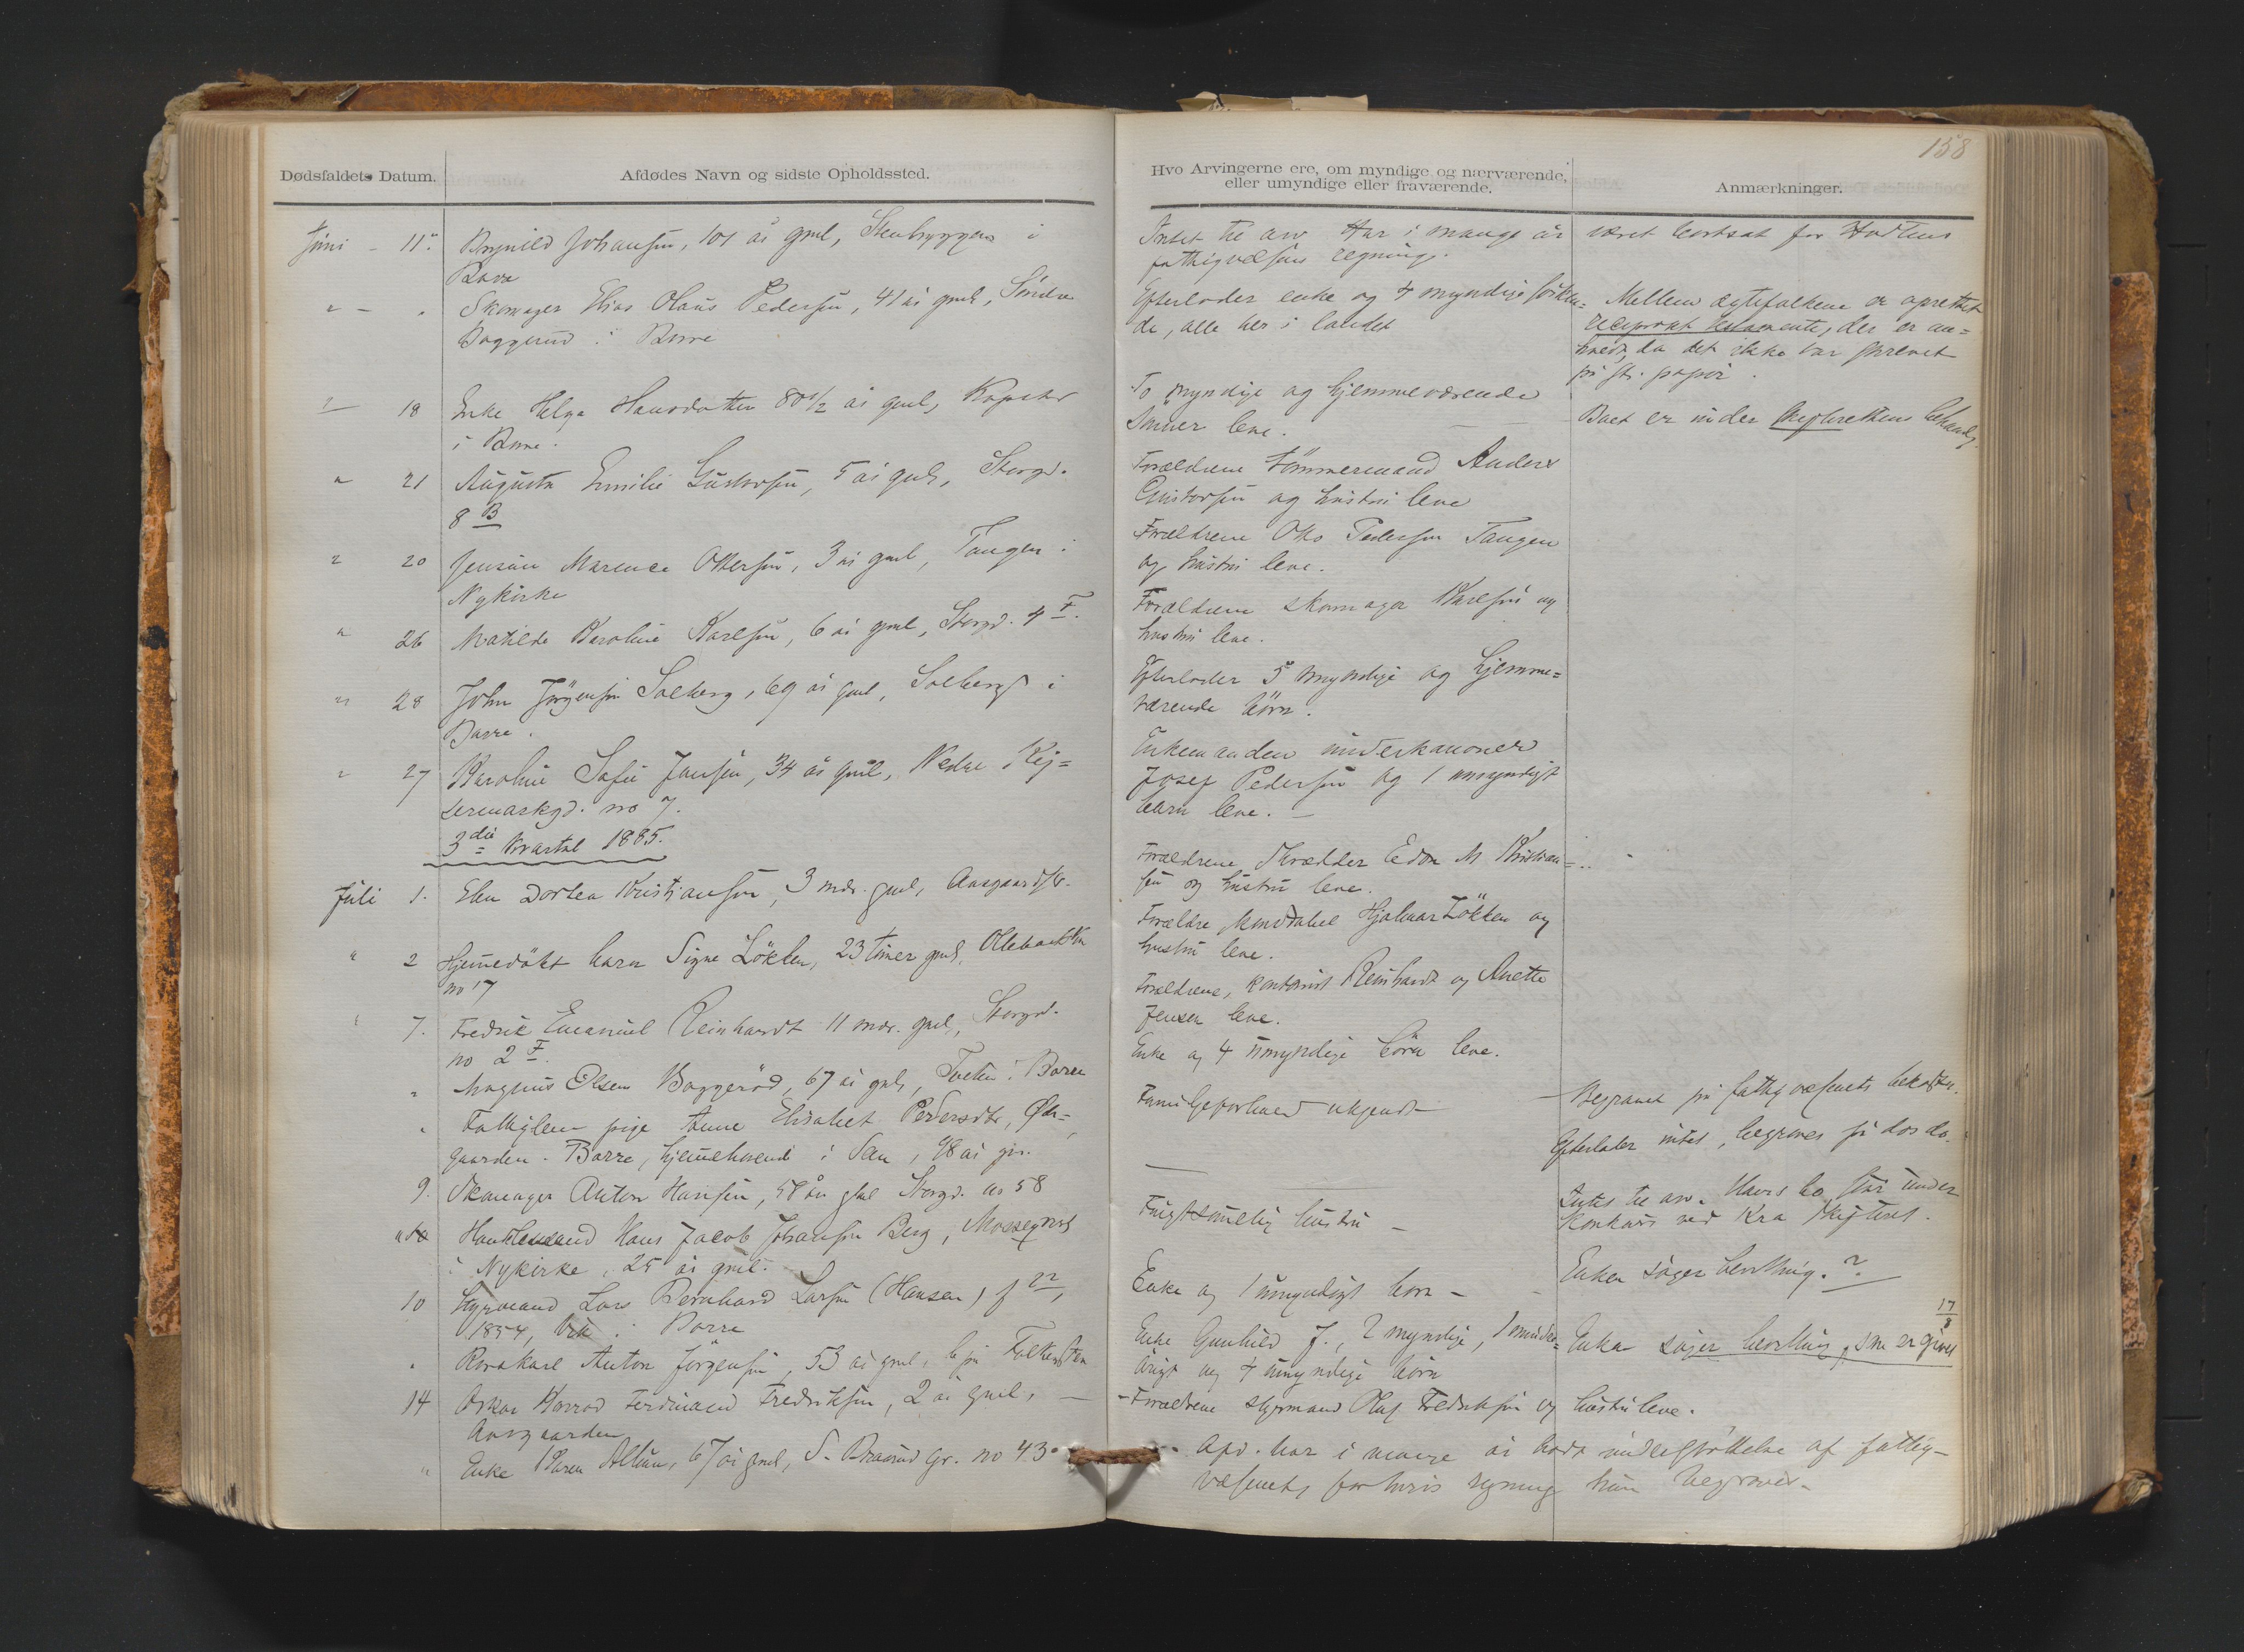 158
Dødsfaldets Datum.
Afdødes Navn og sidste Opholdssted.
Juni - 11.
Brynild Johansen, 101 år gml, Stenbryggen i
Borre
Skomager Elias Olaus Pedersen, 41 år gml, Söndre
Baggerud i Borre
18 Enke Helga Hansdatter 80 1/2 år gml,
i Borre.
21 Augusta Emilie Gustavsen, 5 år gml, Storgd.
8 B
20 Marence Ottersen, 3 år gml, Tangen i
Nykirke
26 Matilde Karoline Karlsen, 6 år gml, Storgd. 4 F.
28 John Jörgensen Solberg, 69 år gml, Solberg i
Borre.
27 Karoline Sofie Jansen, 34 år gml, Nedre Kej=
sermarkgd. no 7.
3die Kvartal 1885.
Juli 1. Elen Dortea Kristiansen, 3 mdr. gml, Aasgaardstr.
2 Hjemedöbt barn Signe Lökken, 23 timer gml,
no 17
7. Fredrik Emanuel Reinhardt 11 mdr. gml, Storgd.
no 2 F.
Magnus Olsen Baggeröd, 67 år gml, i Borre
Fattiglem pige Anne Elisabet Pedersdtr,
gaarden i Borre, hjemehörende i San, 48 år gm.
9. Skomager Anton Hansen, 58 år gml Storgd. no 58
Handlesmand Hans Jacob Johansen Berg,
i Nykirke, 25 år gml.
10 Styrmand Lars Bernhard Larsen (Hansen) f
1854, Vik i Borre
Rorskarl Anton Jörgensen, 53 år gml, b. på Falkensten
14 Oskar Konrad Ferdinand Fredriksen, 2 år gml,
Aasgaarden
Enke Karen, 67 år gml, S. Braarud gr. no 43.
Hvo Arvingerne ere, om myndige og nærværende,
eller umyndige eller fraværende.
Intet til arv. Har i mange år
fattigvæsens regning.
Efterlader enke og 4 myndige
de, alle her i landet
To myndige og hjemmeværende
Sönner leve.
Forældrene tömmermand Anders
Gustavsen og hustru leve
Forældrene Otto Pedersen Tangen
og hustru leve.
Forældrene skomager Karlsen og
hustru leve.
Efterlader 5 myndige og hjemme=
værende börn.
Enkemanden underkanoner
Josef Pedersen og 1 umyndigt
barn leve.
Forældrene Skrædder Edv. M. Kristian=
sen og hustru leve.
Forældre konstabel Hjalmar Lökken og
hustru leve.
Forældrene, kontorist Reinhardt og Anette
Jensen leve.
Enke og 4 umyndige börn leve.
Familjeforhold ukjendt
Frugtsomelig hustru -
Enke og 1 umyndigt barn -
Enke Gunhild J., 2 myndige, 1 minder=
årigt og 4 umyndige börn
Forældrene styrmand Olaf Fredriksen og hustru leve.
Afd. har i mange år havt understöttelse af fattig-
væsenet, for hvis regning hun begraves.
Anmærkninger.
været bortsat for Hortens
Mellem ægtefolkene er oprettet
reciprokt testamente, der er an=
da det ikke var skrevet
på st. papir.
Boet er under skifterettens behandlg
Begravet på fattigvæsenets bekostn.
Efterlader intet, begraves på dos do.
Intet til arv. Hans bo står under
konkurs ved Kra skifteret.
Enken söger bevilling.?
Enken söger bevilling, som er givet
17/8